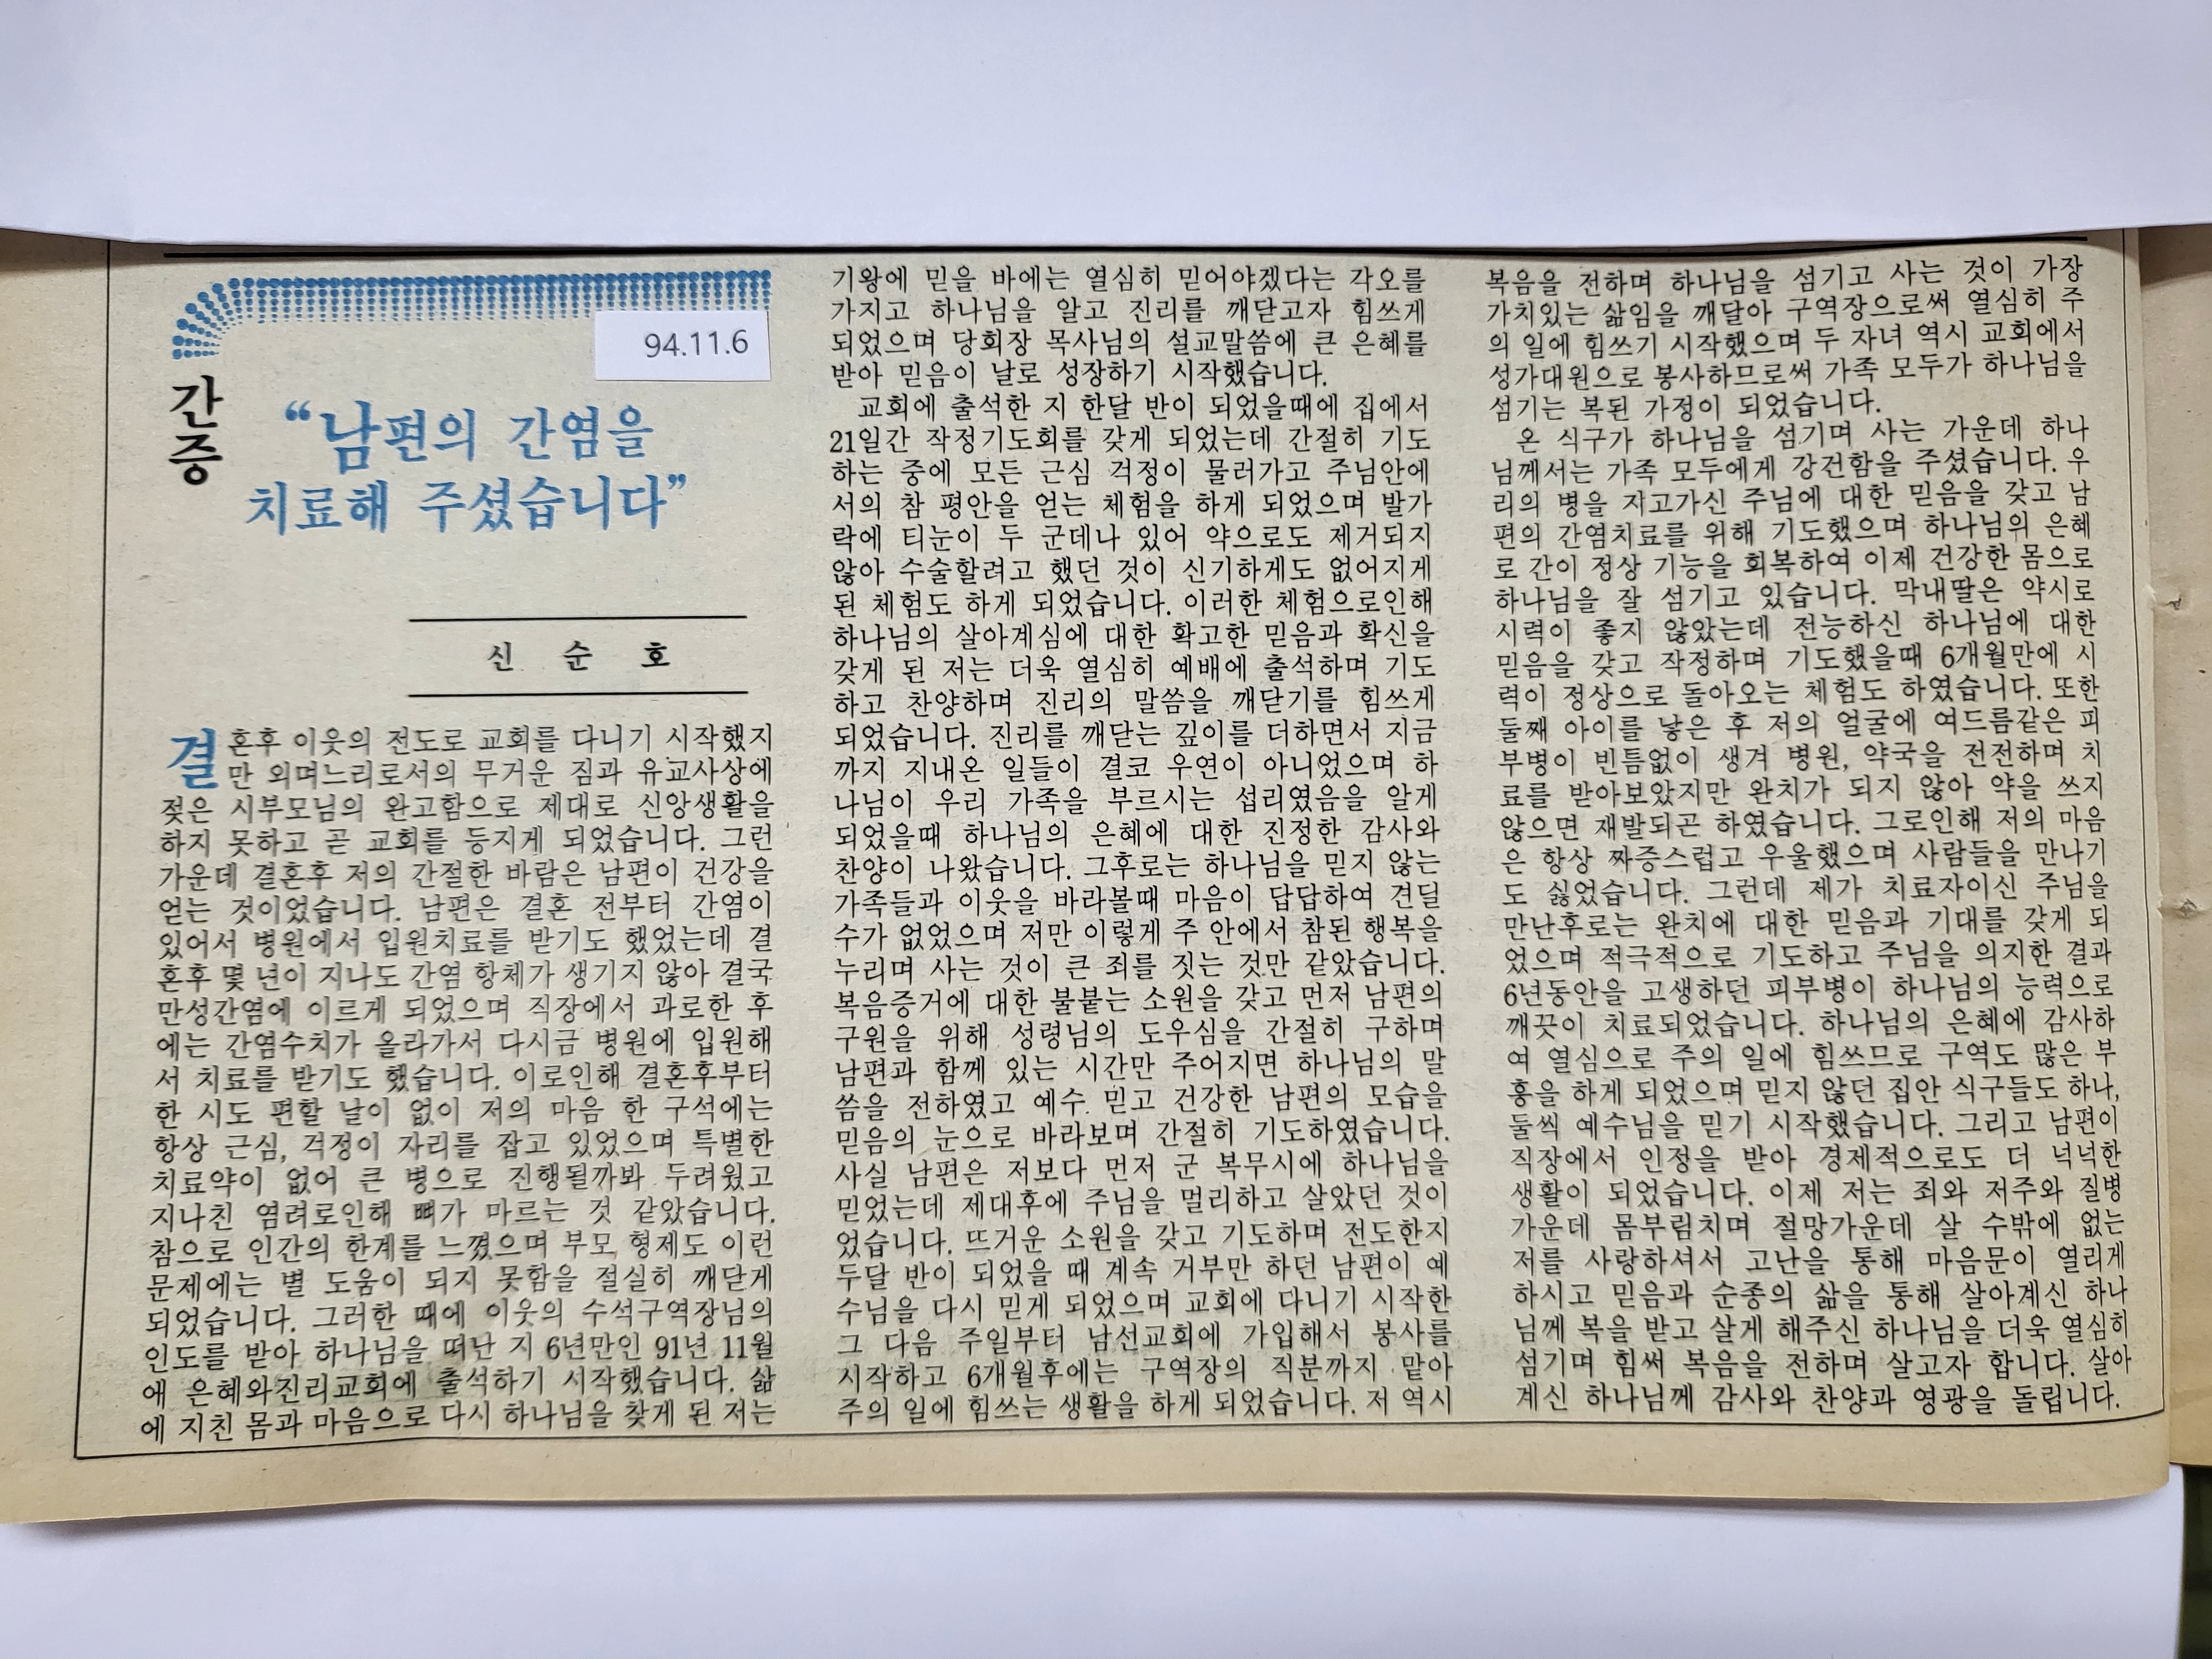 94.11.6
간증
“남편의 간염을
치료해 주셨습니다”
신 순 호
결혼후 이웃의 전도로 교회를 다니기 시작했지
만 외며느리로서의 무거운 짐과 유교사상에
젖은 시부모님의 완고함으로 제대로 신앙생활을
하지 못하고 곧 교회를 등지게 되었습니다. 그런
가운데 결혼후 저의 간절한 바람은 남편이 건강을
얻는 것이었습니다. 남편은 결혼 전부터 간염이
있어서 병원에서 입원치료를 받기도 했었는데 결
혼후 몇 년이 지나도 간염 항체가 생기지 않아 결국
만성간염에 이르게 되었으며 직장에서 과로한 후
에는 간염수치가 올라가서 다시금 병원에 입원해
서 치료를 받기도 했습니다. 이로인해 결혼후부터
한 시도 편할 날이 없이 저의 마음 한 구석에는
항상 근심, 걱정이 자리를 잡고 있었으며 특별한
치료약이 없어 큰 병으로 진행될까봐 두려웠고
지나친 염려로인해 뼈가 마르는 것 같았습니다.
참으로 인간의 한계를 느꼈으며 부모 형제도 이런
문제에는 별 도움이 되지 못함을 절실히 깨닫게
되었습니다. 그러한 때에 이웃의 수석구역장님의
인도를 받아 하나님을 떠난 지 6년만인 91년 11월
에 은혜와진리교회에 출석하기 시작했습니다. 삶
에 지친 몸과 마음으로 다시 하나님을 찾게 된 저는
기왕에 믿을 바에는 열심히 믿어야겠다는 각오를
가지고 하나님을 알고 진리를 깨닫고자 힘쓰게
되었으며 당회장 목사님의 설교말씀에 큰 은혜를
받아 믿음이 날로 성장하기 시작했습니다.
교회에 출석한 지 한달 반이 되었을때에 집에서
21일간 작정기도회를 갖게 되었는데 간절히 기도
하는 중에 모든 근심 걱정이 물러가고 주님안에
서의 참 평안을 얻는 체험을 하게 되었으며 발가
락에 티눈이 두 군데나 있어 약으로도 제거되지
않아 수술할려고 했던 것이 신기하게도 없어지게
된 체험도 하게 되었습니다. 이러한 체험으로인해
하나님의 살아계심에 대한 확고한 믿음과 확신을
갖게 된 저는 더욱 열심히 예배에 출석하며 기도
하고 찬양하며 진리의 말씀을 깨닫기를 힘쓰게
되었습니다. 진리를 깨닫는 깊이를 더하면서 지금
까지 지내온 일들이 결코 우연이 아니었으며 하
나님이 우리 가족을 부르시는 섭리였음을 알게
되었을때 하나님의 은혜에 대한 진정한 감사와
찬양이 나왔습니다. 그후로는 하나님을 믿지 않는
가족들과 이웃을 바라볼때 마음이 답답하여 견딜
수가 없었으며 저만 이렇게 주 안에서 참된 행복을
누리며 사는 것이 큰 죄를 짓는 것만 같았습니다.
복음증거에 대한 불붙는 소원을 갖고 먼저 남편의
구원을 위해 성령님의 도우심을 간절히 구하며
남편과 함께 있는 시간만 주어지면 하나님의 말
씀을 전하였고 예수 믿고 건강한 남편의 모습을
믿음의 눈으로 바라보며 간절히 기도하였습니다.
사실 남편은 저보다 먼저 군 복무시에 하나님을
믿었는데 제대후에 주님을 멀리하고 살았던 것이
었습니다. 뜨거운 소원을 갖고 기도하며 전도한지
두달 반이 되었을 때 계속 거부만 하던 남편이 예
수님을 다시 믿게 되었으며 교회에 다니기 시작한
그 다음 주일부터 남선교회에 가입해서 봉사를
시작하고 6개월후에는 구역장의 직분까지 맡아
주의 일에 힘쓰는 생활을 하게 되었습니다. 저 역시
복음을 전하며 하나님을 섬기고 사는 것이 가장
가치있는 삶임을 깨달아 구역장으로써 열심히 주
의 일에 힘쓰기 시작했으며 두 자녀 역시 교회에서
성가대원으로 봉사하므로써 가족 모두가 하나님을
섬기는 복된 가정이 되었습니다.
온 식구가 하나님을 섬기며 사는 가운데 하나
님께서는 가족 모두에게 강건함을 주셨습니다. 우
리의 병을 지고가신 주님에 대한 믿음을 갖고 남
편의 간염치료를 위해 기도했으며 하나님의 은혜
로 간이 정상 기능을 회복하여 이제 건강한 몸으로
하나님을 잘 섬기고 있습니다. 막내딸은 약시로
시력이 좋지 않았는데 전능하신 하나님에 대한
믿음을 갖고 작정하며 기도했을때 6개월만에 시
력이 정상으로 돌아오는 체험도 하였습니다. 또한
둘째 아이를 낳은 후 저의 얼굴에 여드름같은 피
부병이 빈틈없이 생겨 병원, 약국을 전전하며 치
료를 받아보았지만 완치가 되지 않아 약을 쓰지
않으면 재발되곤 하였습니다. 그로인해 저의 마음
은 항상 짜증스럽고 우울했으며 사람들을 만나기
도 싫었습니다. 그런데 제가 치료자이신 주님을
만난후로는 완치에 대한 믿음과 기대를 갖게 되
었으며 적극적으로 기도하고 주님을 의지한 결과
6년동안을 고생하던 피부병이 하나님의 능력으로
깨끗이 치료되었습니다. 하나님의 은혜에 감사하
여 열심으로 주의 일에 힘쓰므로 구역도 많은 부
흥을 하게 되었으며 믿지 않던 집안 식구들도 하나,
둘씩 예수님을 믿기 시작했습니다. 그리고 남편이
직장에서 인정을 받아 경제적으로도 더 넉넉한
생활이 되었습니다. 이제 저는 죄와 저주와 질병
가운데 몸부림치며 절망가운데 살 수밖에 없는
저를 사랑하셔서 고난을 통해 마음문이 열리게
하시고 믿음과 순종의 삶을 통해 살아계신 하나
님께 복을 받고 살게 해주신 하나님을 더욱 열심히
섬기며 힘써 복음을 전하며 살고자 합니다. 살아
계신 하나님께 감사와 찬양과 영광을 돌립니다.